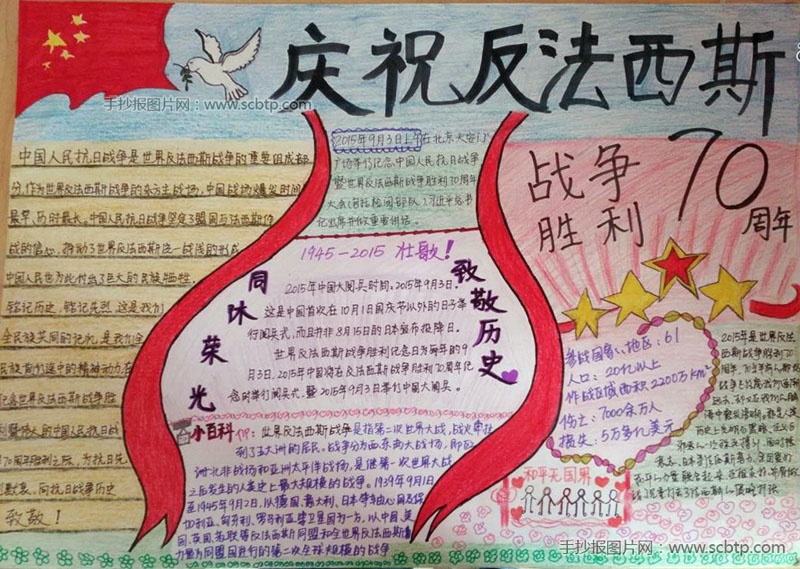 手抄报图片网：www.scbtp.com
庆祝反法西斯
战争
胜利 70
周年
中国人民抗日战争是世界反法西斯战争的重要组成部
分,作为世界反法西斯战争的东方主战场,中国战场爆发时间
最早,历时最长,中国人民抗日战争坚定了盟国与法西斯作
战的信心,推动了世界反法西斯统一战线的形成
中国人民也为此付出了巨大的民族牺牲
铭记历史,铭记先烈,这是我们
全民族共同的记忆,是我们全
民族前行途中的精神动力,在
纪念世界反法西斯战争胜
利暨伟大的中国人民抗日战
70周年胜利之际,为抗日先
默哀,向抗日战争历史
致敬!
2015年9月3日上午在北京天安门
广场举行纪念中国人民抗日战争
暨世界反法西斯战争胜利70周年
大会
1945-2015 壮歌!
同休荣光
致敬历史
2015年中国大阅兵时间,2015年9月3日,
这是中国首次在10月1日国庆节以外的日子举
行阅兵式,而且并非8月15日的日本宣布投降日。
世界反法西斯战争胜利纪念日为每年的9
月3日,2015年中国将在反法西斯战争胜利70周年纪
念时举行阅兵式,暨2015年9月3举行中国大阅兵。
小百科
世界反法西斯战争是指第二次世界大战,战火牵扯
到了五大洲的居民。战争分为西东两大战场,即欧
洲北非战场和亚洲太平洋战场,是继第一次世界大战
之后发生的人类史上最大规模的战争。1939年9月1日
至1945年9月2日,以德国,意大利,日本等轴心国及保
加利亚,匈牙利,罗马利亚等卫星国为一方,以中国,美
国,英国,苏联等反法西斯同盟和全世界反法西斯
力量为同盟国进行的第二次全球规模的战争
参战国家、地区:61
人口:20亿以上
作战区域面积2200万km²
伤亡:7000余万人
损失:5万多亿美元
和平无国界
2015年是世界反法
西斯战争胜利70
手抄报图片网：www.scbtp.com